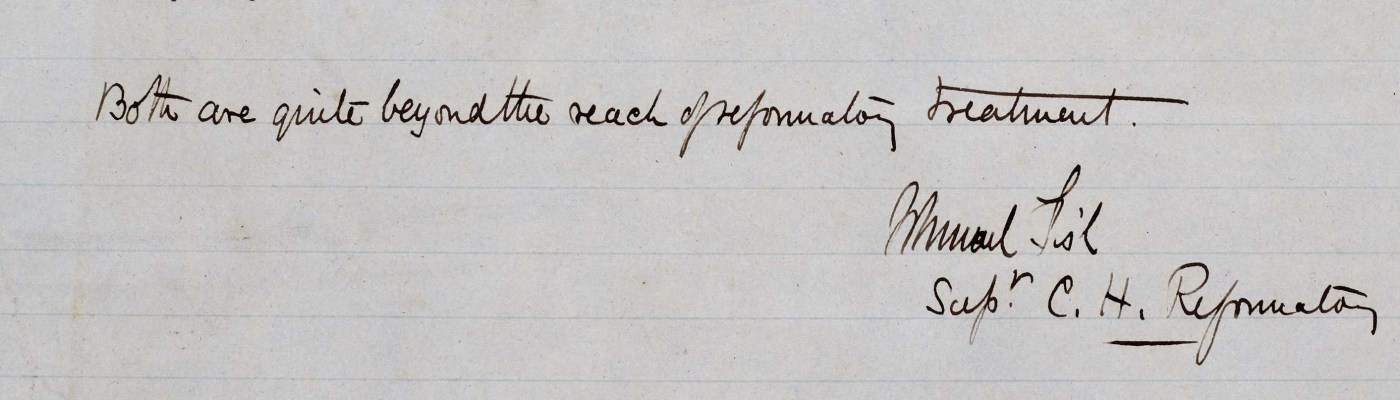 Both are quite beyond the reach of reformatory treatment.
Supr. C. H. Reformatory